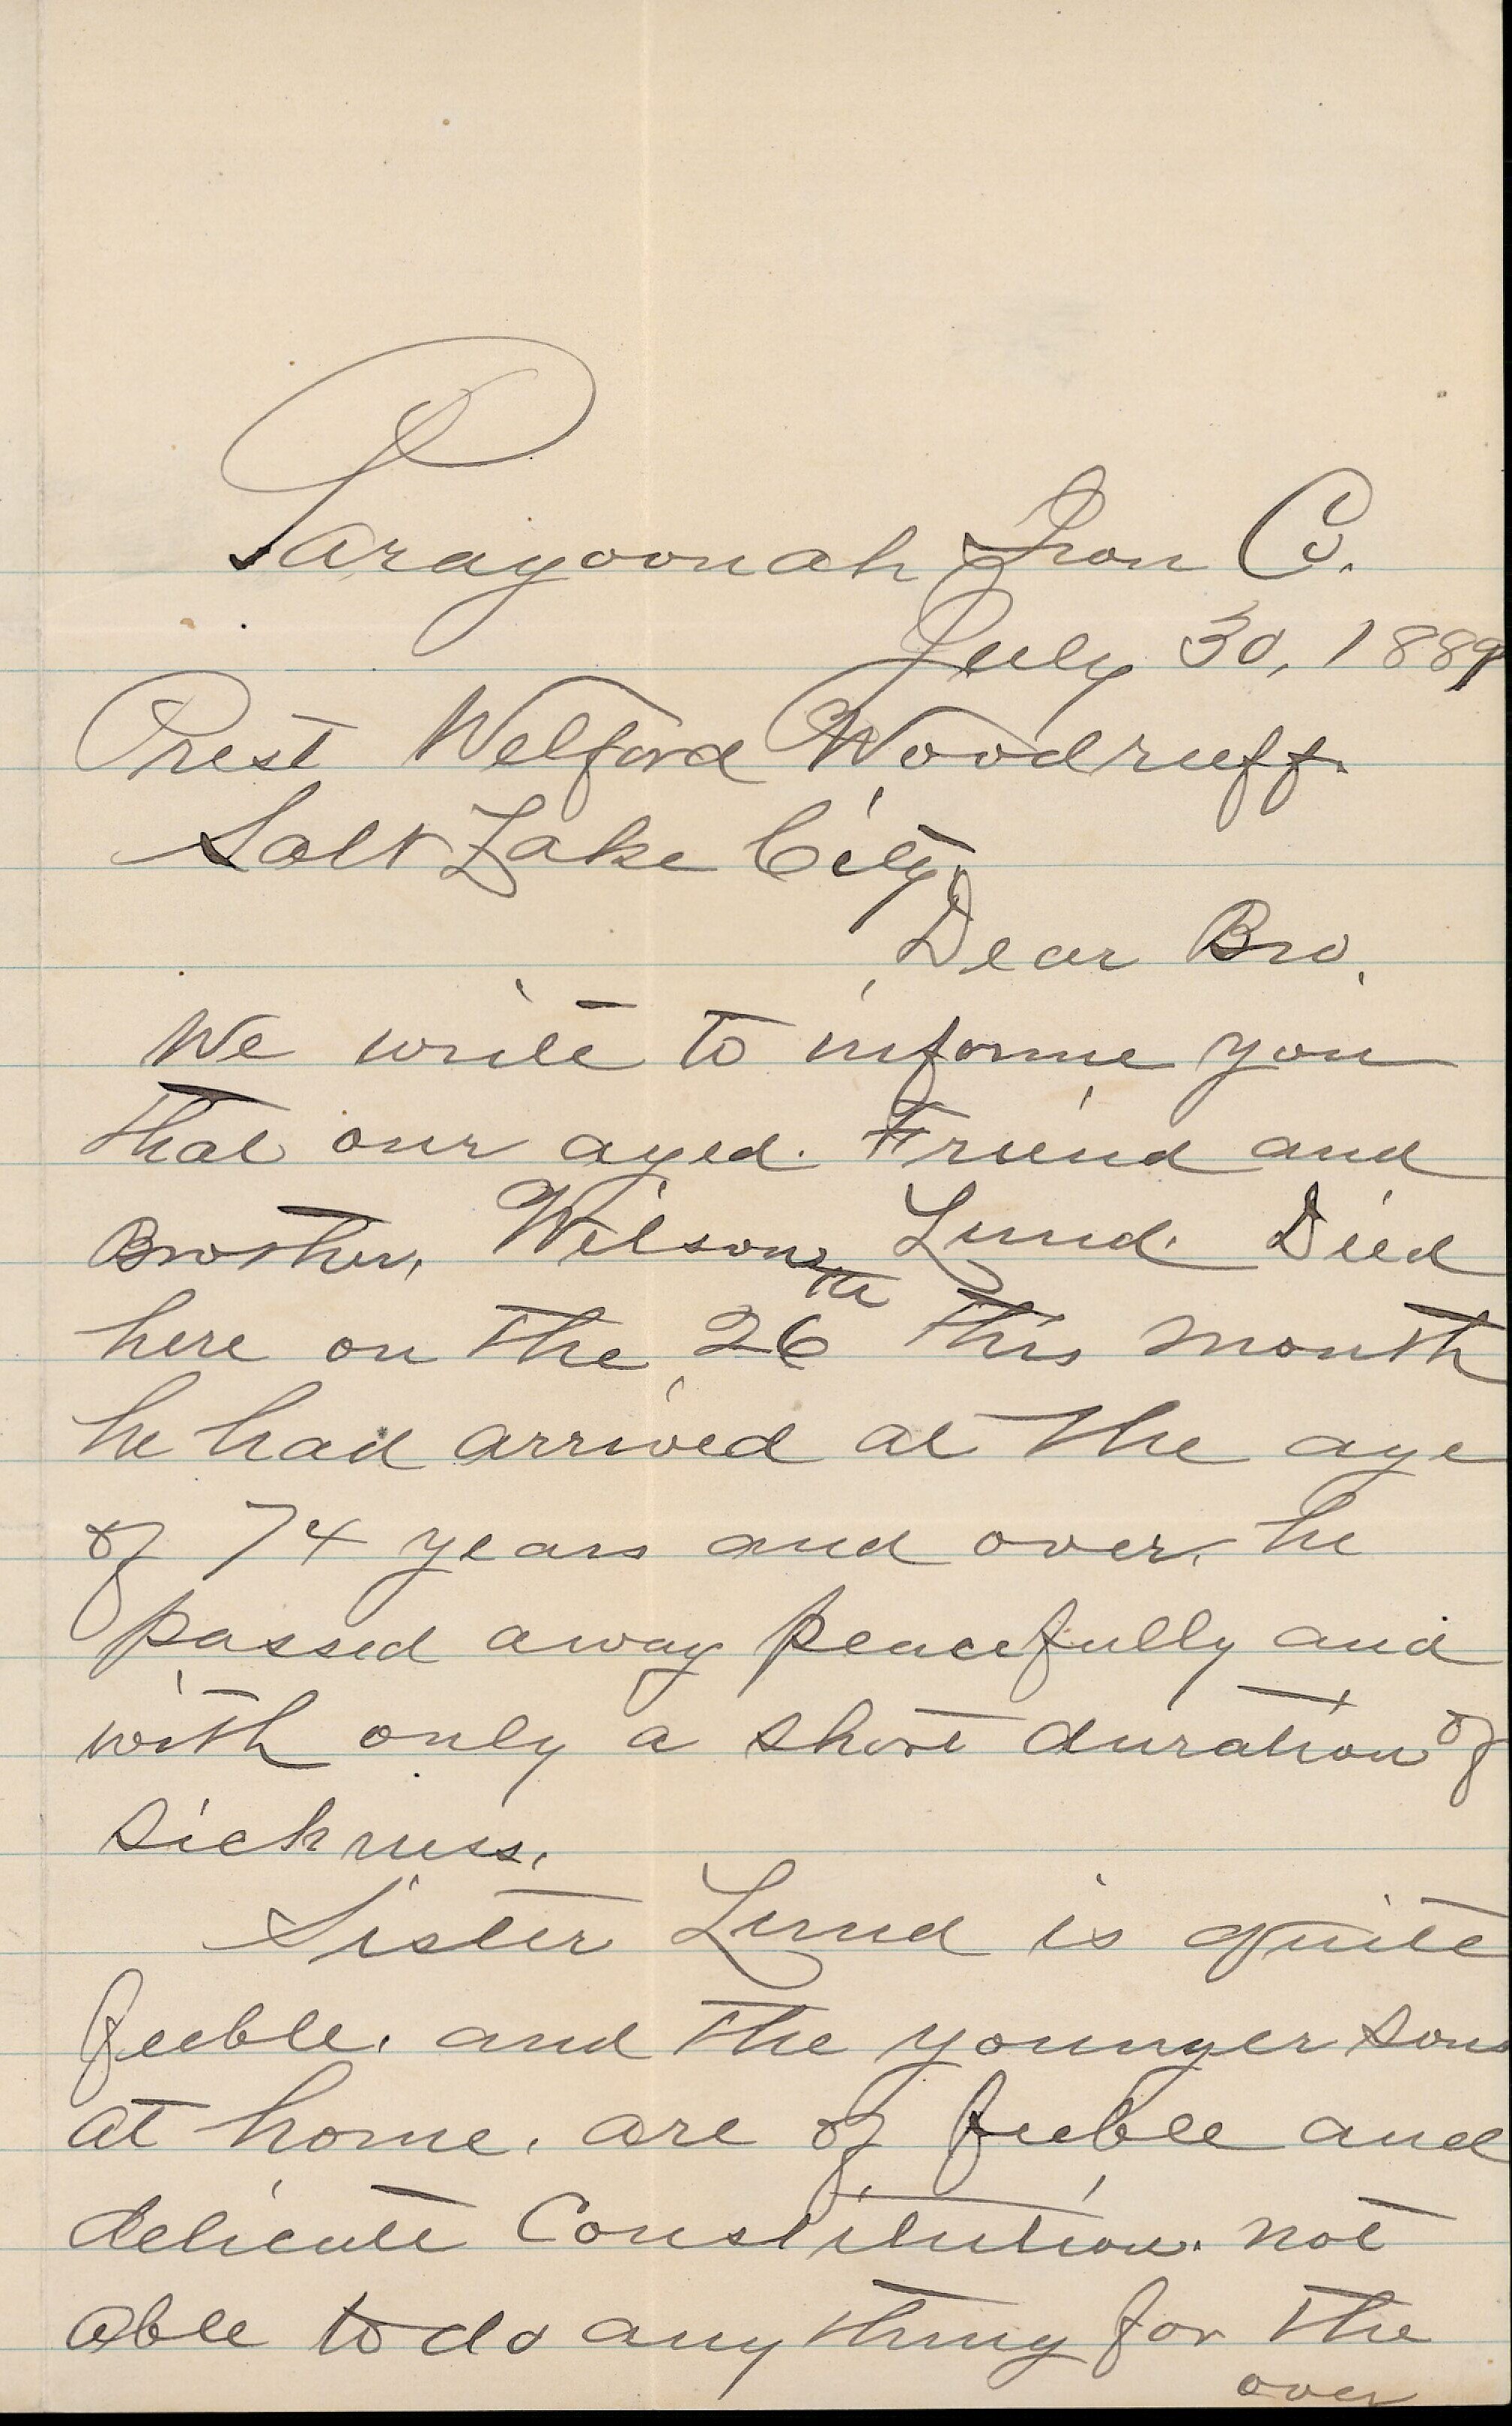 Paragoonah Iron Co.
July 30, 1889
Prest Welford Woodruff.
Salt Lake City,
Dear Bro.
We write to informe you
that our aged. Friend and
Brother, Wilson Lund. Died
here on the 26th this month
he had arrived at the age
of 74 years and over. he
passed away peacefully and
with only a short duration of
sickness.
Sister Lund is quite
feeble. and the younger sons
at home. are of feeble and
delicate Constitution. not
able to do any thing for the
over